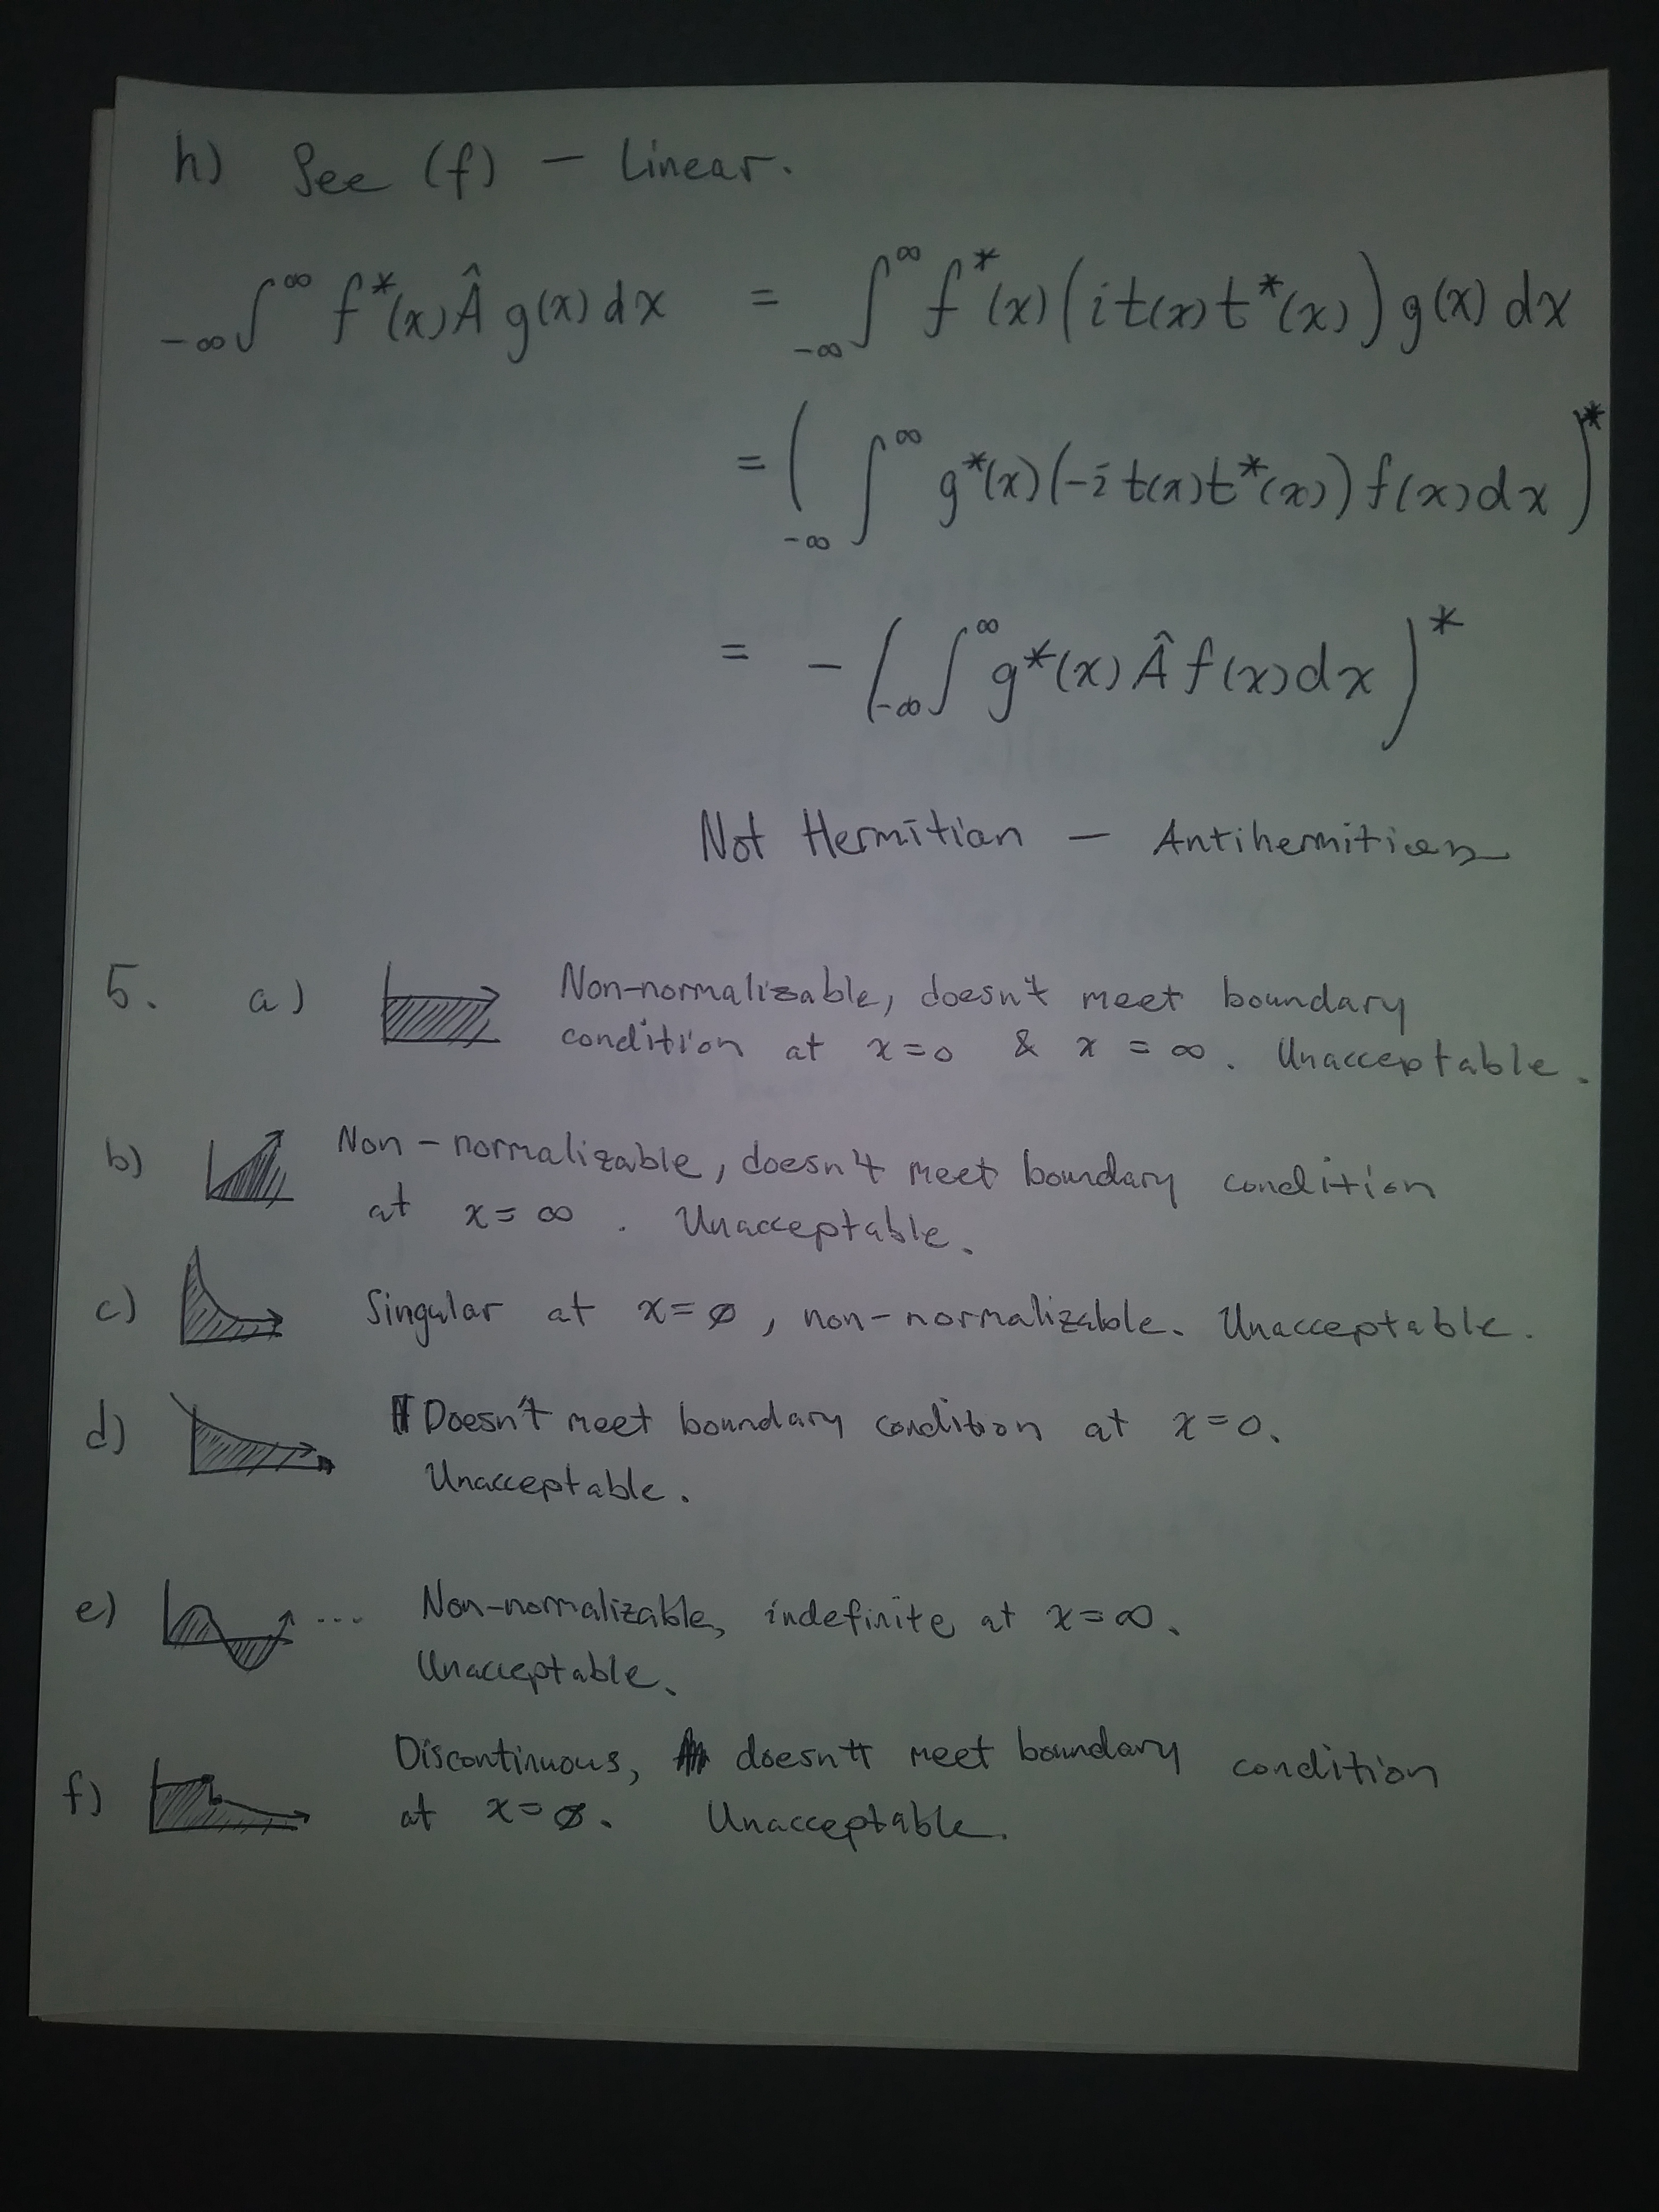 h) See (f) — Linear.
-∞∫^∞ f*(x) Â g(x) dx = -∞∫^∞ f*(x) (i t(x) t*(x)) g(x) dx
= ( -∞∫^∞ g*(x) (-i t(x) t*(x)) f(x) dx )*
= - ( -∞∫^∞ g*(x) Â f(x) dx )*
Not Hermitian — Antihermitian
5. a) Non-normalizable, doesn't meet boundary
condition at x=0 & x = ∞. Unacceptable.
b) Non-normalizable, doesn't meet boundary condition
at x=∞. Unacceptable.
c) Singular at x=∅, non-normalizable. Unacceptable.
d) Doesn't meet boundary condition at x=0.
Unacceptable.
e) ... Non-normalizable, indefinite at x=∞.
Unacceptable.
f) Discontinuous, doesn't meet boundary condition
at x=∅. Unacceptable.